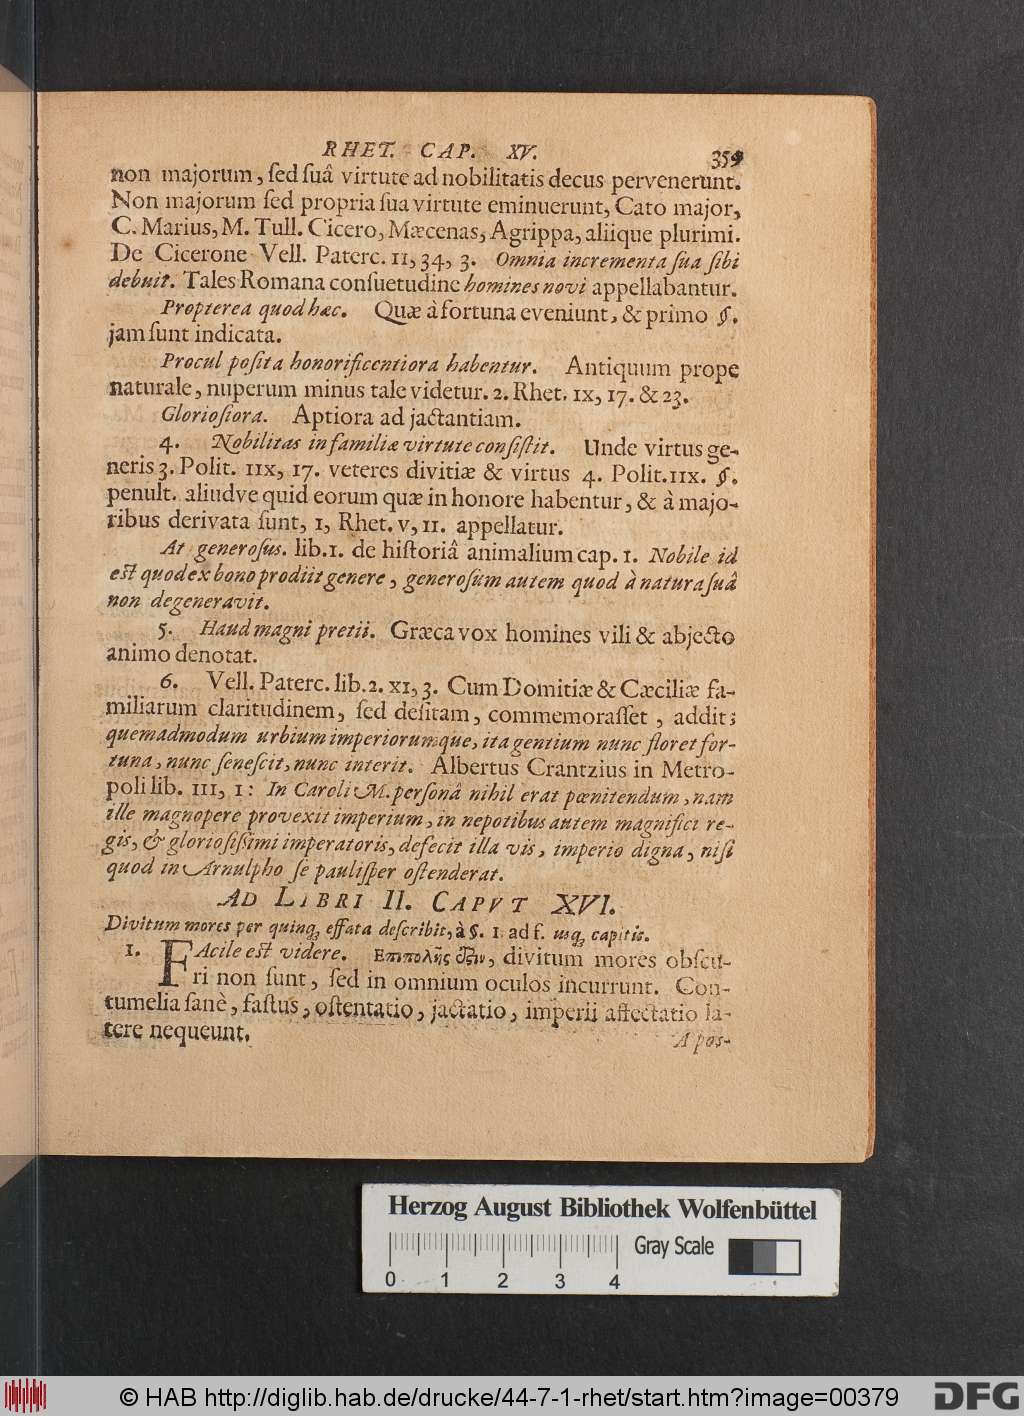 RHET. CAP. XV. 359
non majorum, ſed ſuâ virtute ad nobilitatis decus pervenerunt.
Non majorum ſed propria ſua virtute eminuerunt, Cato major,
C. Marius, M. Tull. Cicero, Mæcenas, Agrippa, aliique plurimi.
De Cicerone Vell. Paterc. 11, 34, 3. Omnia incrementa ſua ſibi
debuit. Tales Romana conſuetudine homines novi appellabantur.
Propterea quod hæc. Quæ à fortuna eveniunt, & primo §.
jam ſunt indicata.
Procul poſita honorificentiora habentur. Antiquum prope
naturale, nuperum minus tale videtur. 2. Rhet. ıx, 17. & 23.
Glorioſiora. Aptiora ad jactantiam.
4. Nobilitas in familiæ virtute conſiſtit. Unde virtus ge-
neris 3. Polit. 11x, 17. veteres divitiæ & virtus 4. Polit. 11x. §.
penult. aliudve quid eorum quæ in honore habentur, & à majo-
ribus derivata ſunt, 1, Rhet. v, 11. appellatur.
At generoſus. lib. 1. de hiſtoriâ animalium cap. 1. Nobile id
eſt quod ex bono prodiit genere, generoſum autem quod à natura ſuâ
non degeneravit.
5. Haud magni pretii. Græca vox homines vili & abjecto
animo denotat.
6. Vell. Paterc. lib. 2. xı, 3. Cum Domitiæ & Cæciliæ fa-
miliarum claritudinem, ſed deſitam, commemoraſſet, addit;
quemadmodum urbium imperiorumque, ita gentium nunc floret for-
tuna, nunc ſeneſcit, nunc interit. Albertus Crantzius in Metro-
poli lib. III, 1: In Caroli M. perſonâ nihil erat pœnitendum, nam
ille magnopere provexit imperium, in nepotibus autem magnifici re-
gis, & glorioſiſsimi imperatoris, defecit illa vis, imperio digna, niſi
quod in Arnulpho ſe pauliſper oſtenderat.
AD LIBRI II. CAPVT XVI.
Divitum mores per quinq; effata deſcribit, à §. 1 ad f. usq; capitis.
1. FAcile eſt videre. Επιπολῆς ὅξιν, divitum mores obſcu-
ri non ſunt, ſed in omnium oculos incurrunt. Con-
tumelia ſanè, faſtus, oſtentatio, jactatio, imperii affectatio la-
tere nequeunt.
A pos-
Herzog August Bibliothek Wolfenbüttel
Gray Scale
0 1 2 3 4
© HAB http://diglib.hab.de/drucke/44-7-1-rhet/start.htm?image=00379 DFG